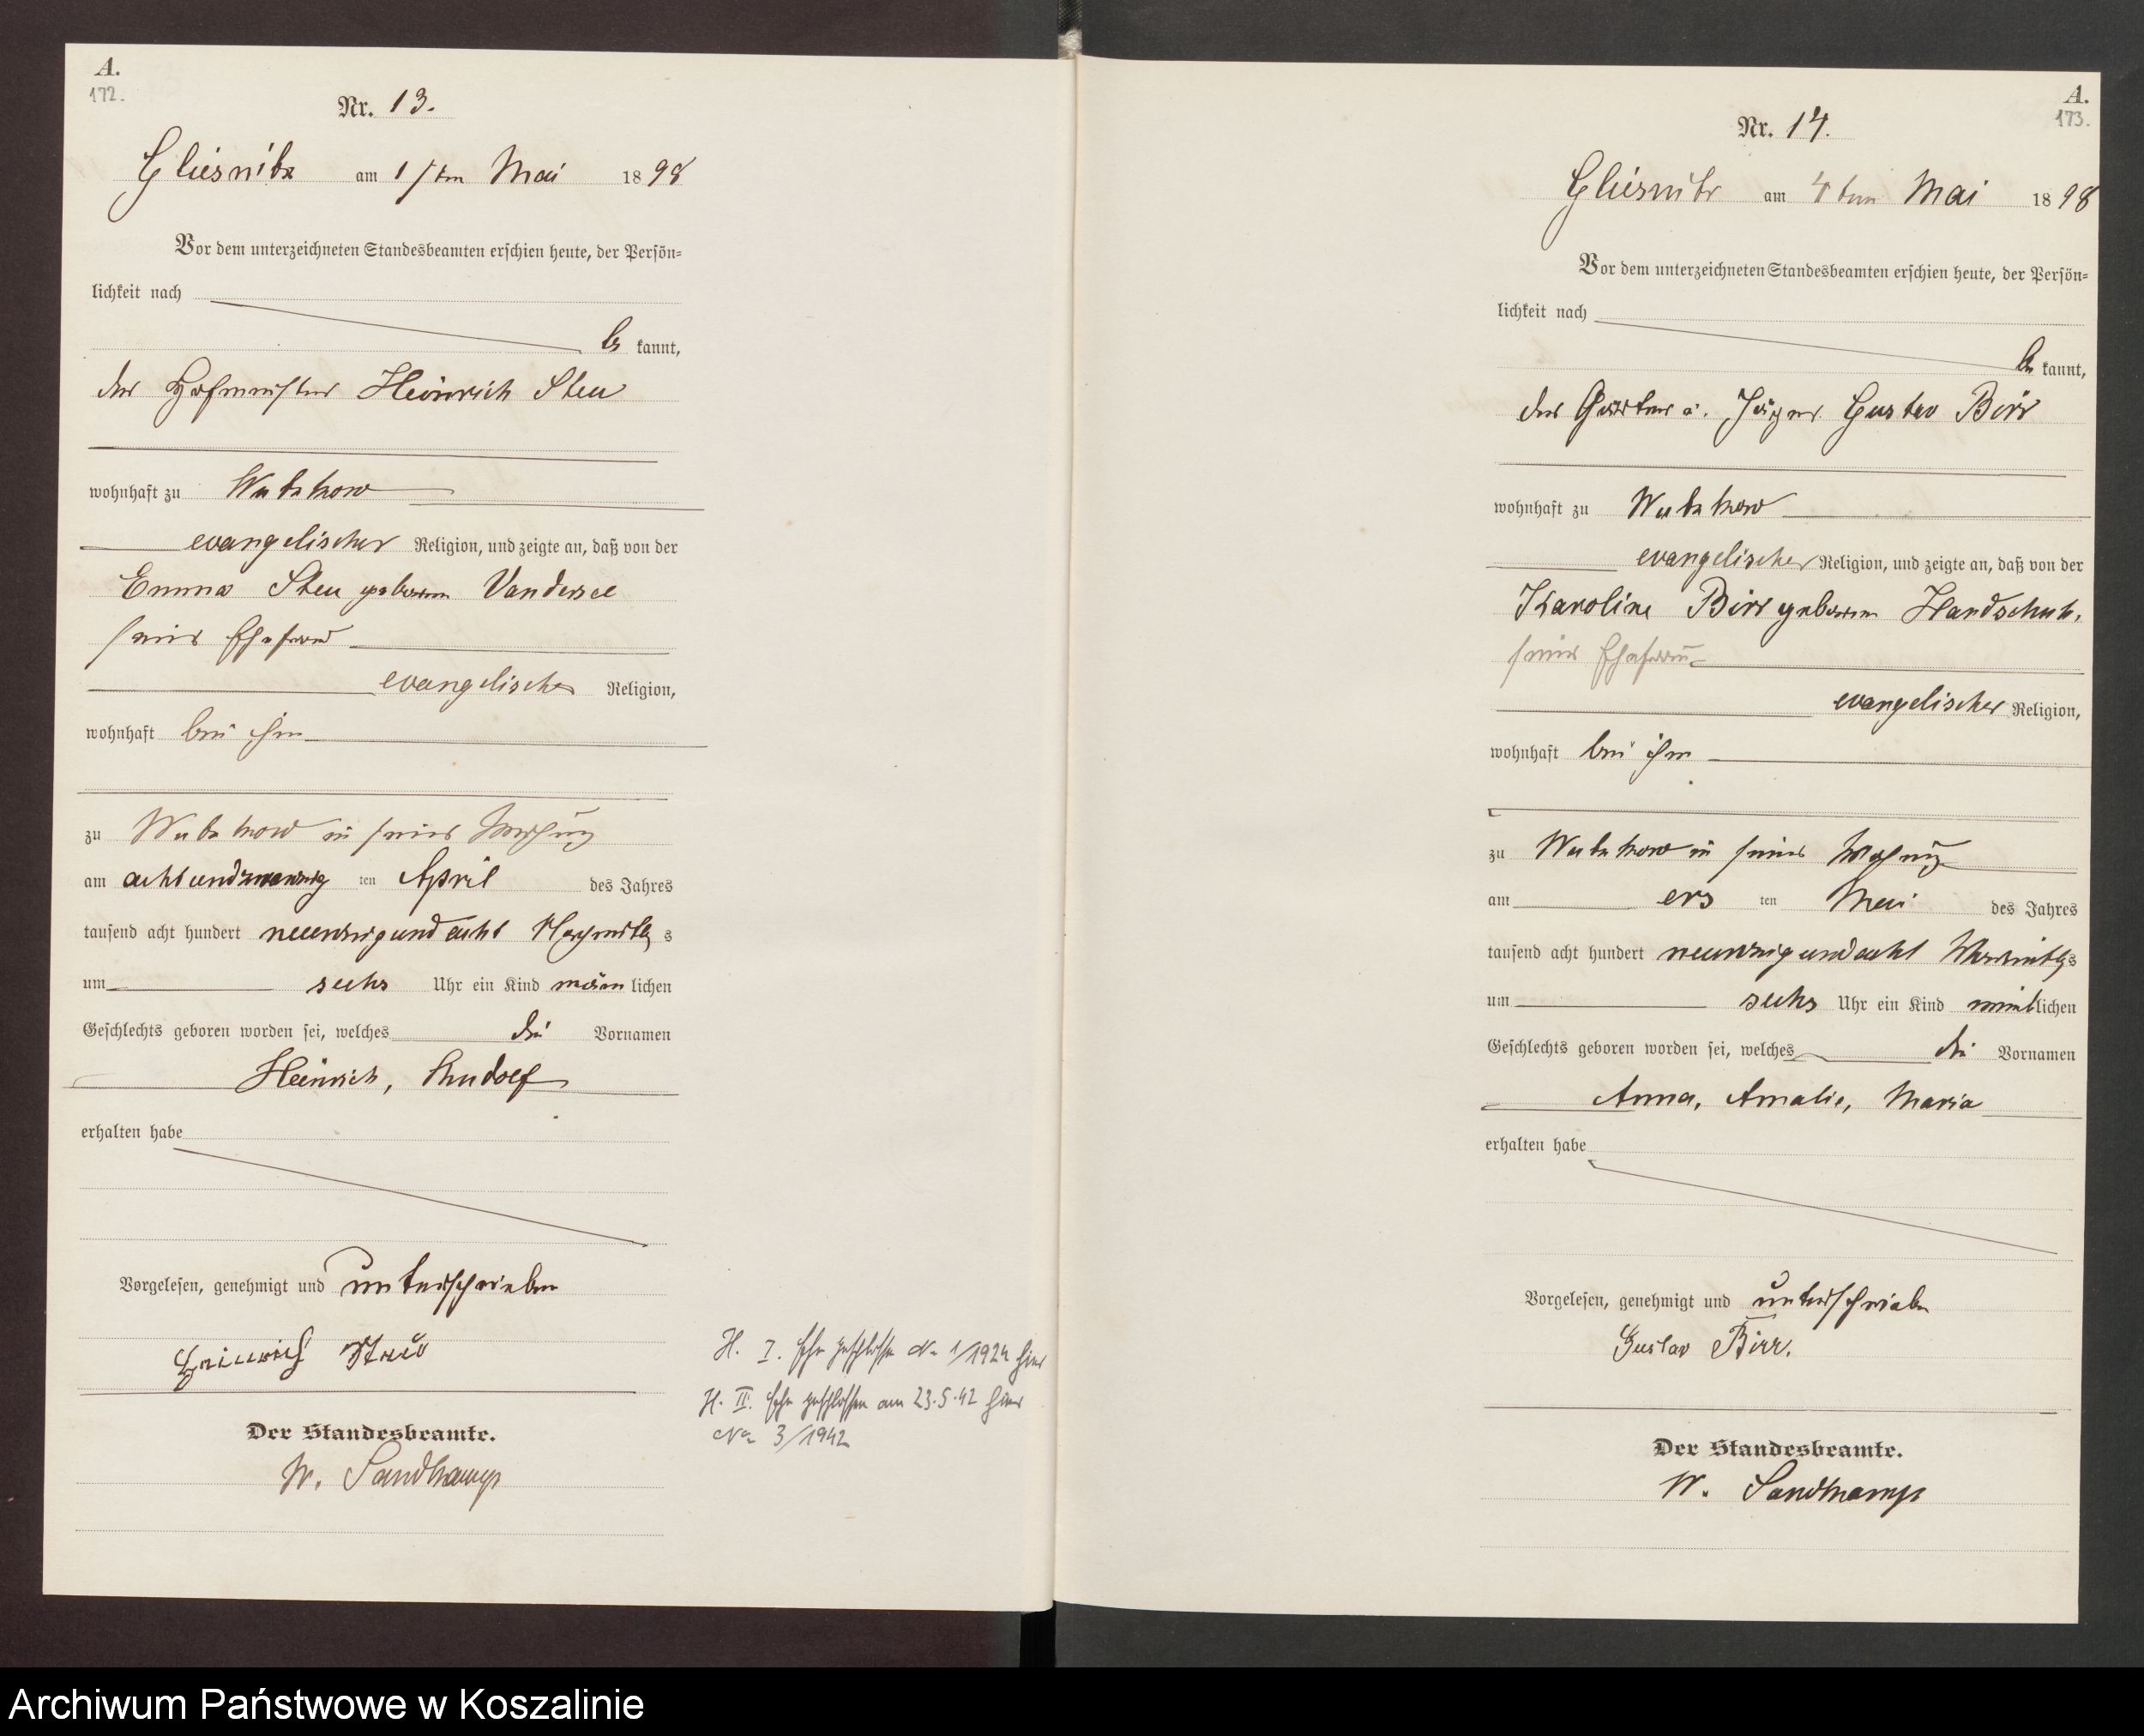 A.
172.
Nr. 13.
Gliesnitz am 1ten Mai 1898
Vor dem unterzeichneten Standesbeamten erschien heute, der Persön=
lichkeit nach
be kannt,
der Hofmeister Heinrich Steu
wohnhaft zu Wutzkow
evangelischer Religion, und zeigte an, daß von der
Emma Steu geborenen Vandersee
seiner Ehefrau
evangelischer Religion,
wohnhaft bei ihm
zu Wutzkow in seiner Wohnung
am achtundzwanzig ten April des Jahres
tausend acht hundert neunzig und acht Nachmittags
um sechs Uhr ein Kind männlichen
Geschlechts geboren worden sei, welches die Vornamen
Heinrich, Rudolf
erhalten habe
Vorgelesen, genehmigt und unterschrieben
Heinrich Steu
Der Standesbeamte.
W. Sandkamp
H. I. Ehe geschlossen Nr 1/1924 hier
H. II. Ehe geschlossen am 23.5.42 hier
Nr 3/1942
A.
173.
Nr. 14.
Gliesnitz am 4ten Mai 1898
Vor dem unterzeichneten Standesbeamten erschien heute, der Persön=
lichkeit nach
be kannt,
der Gärtner u. Jäger Gustav Birr
wohnhaft zu Wutzkow
evangelischer Religion, und zeigte an, daß von der
Karoline Birr geborenen Handschuh,
seiner Ehefrau
evangelischer Religion,
wohnhaft bei ihm
zu Wutzkow in seiner Wohnung
am ers ten Mai des Jahres
tausend acht hundert neunzig und acht Vormittags
um sechs Uhr ein Kind weiblichen
Geschlechts geboren worden sei, welches die Vornamen
Anna, Amalie, Maria
erhalten habe
Vorgelesen, genehmigt und unterschrieben
Gustav Birr.
Der Standesbeamte.
W. Sandkamp
Archiwum Państwowe w Koszalinie